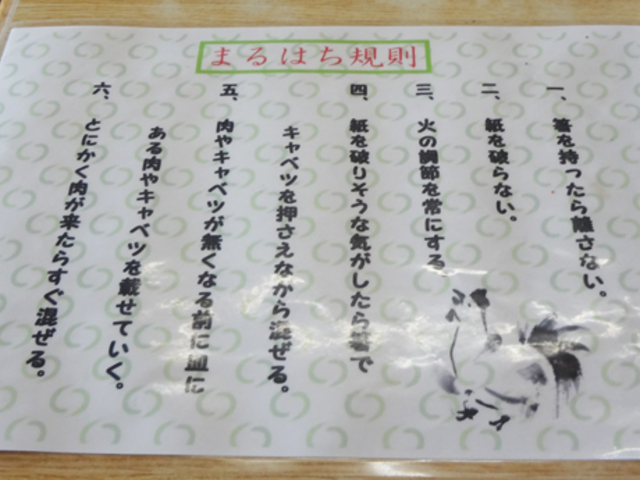 まるはち規則
一、箸を持ったら離さない。
二、紙を破らない。
三、火の調節を常にする。
四、紙を破りそうな気がしたら箸で
キャベツを押さえながら混ぜる。
五、肉やキャベツが無くなる前に皿に
ある肉やキャベツを載せていく。
六、とにかく肉が来たらすぐ混ぜる。